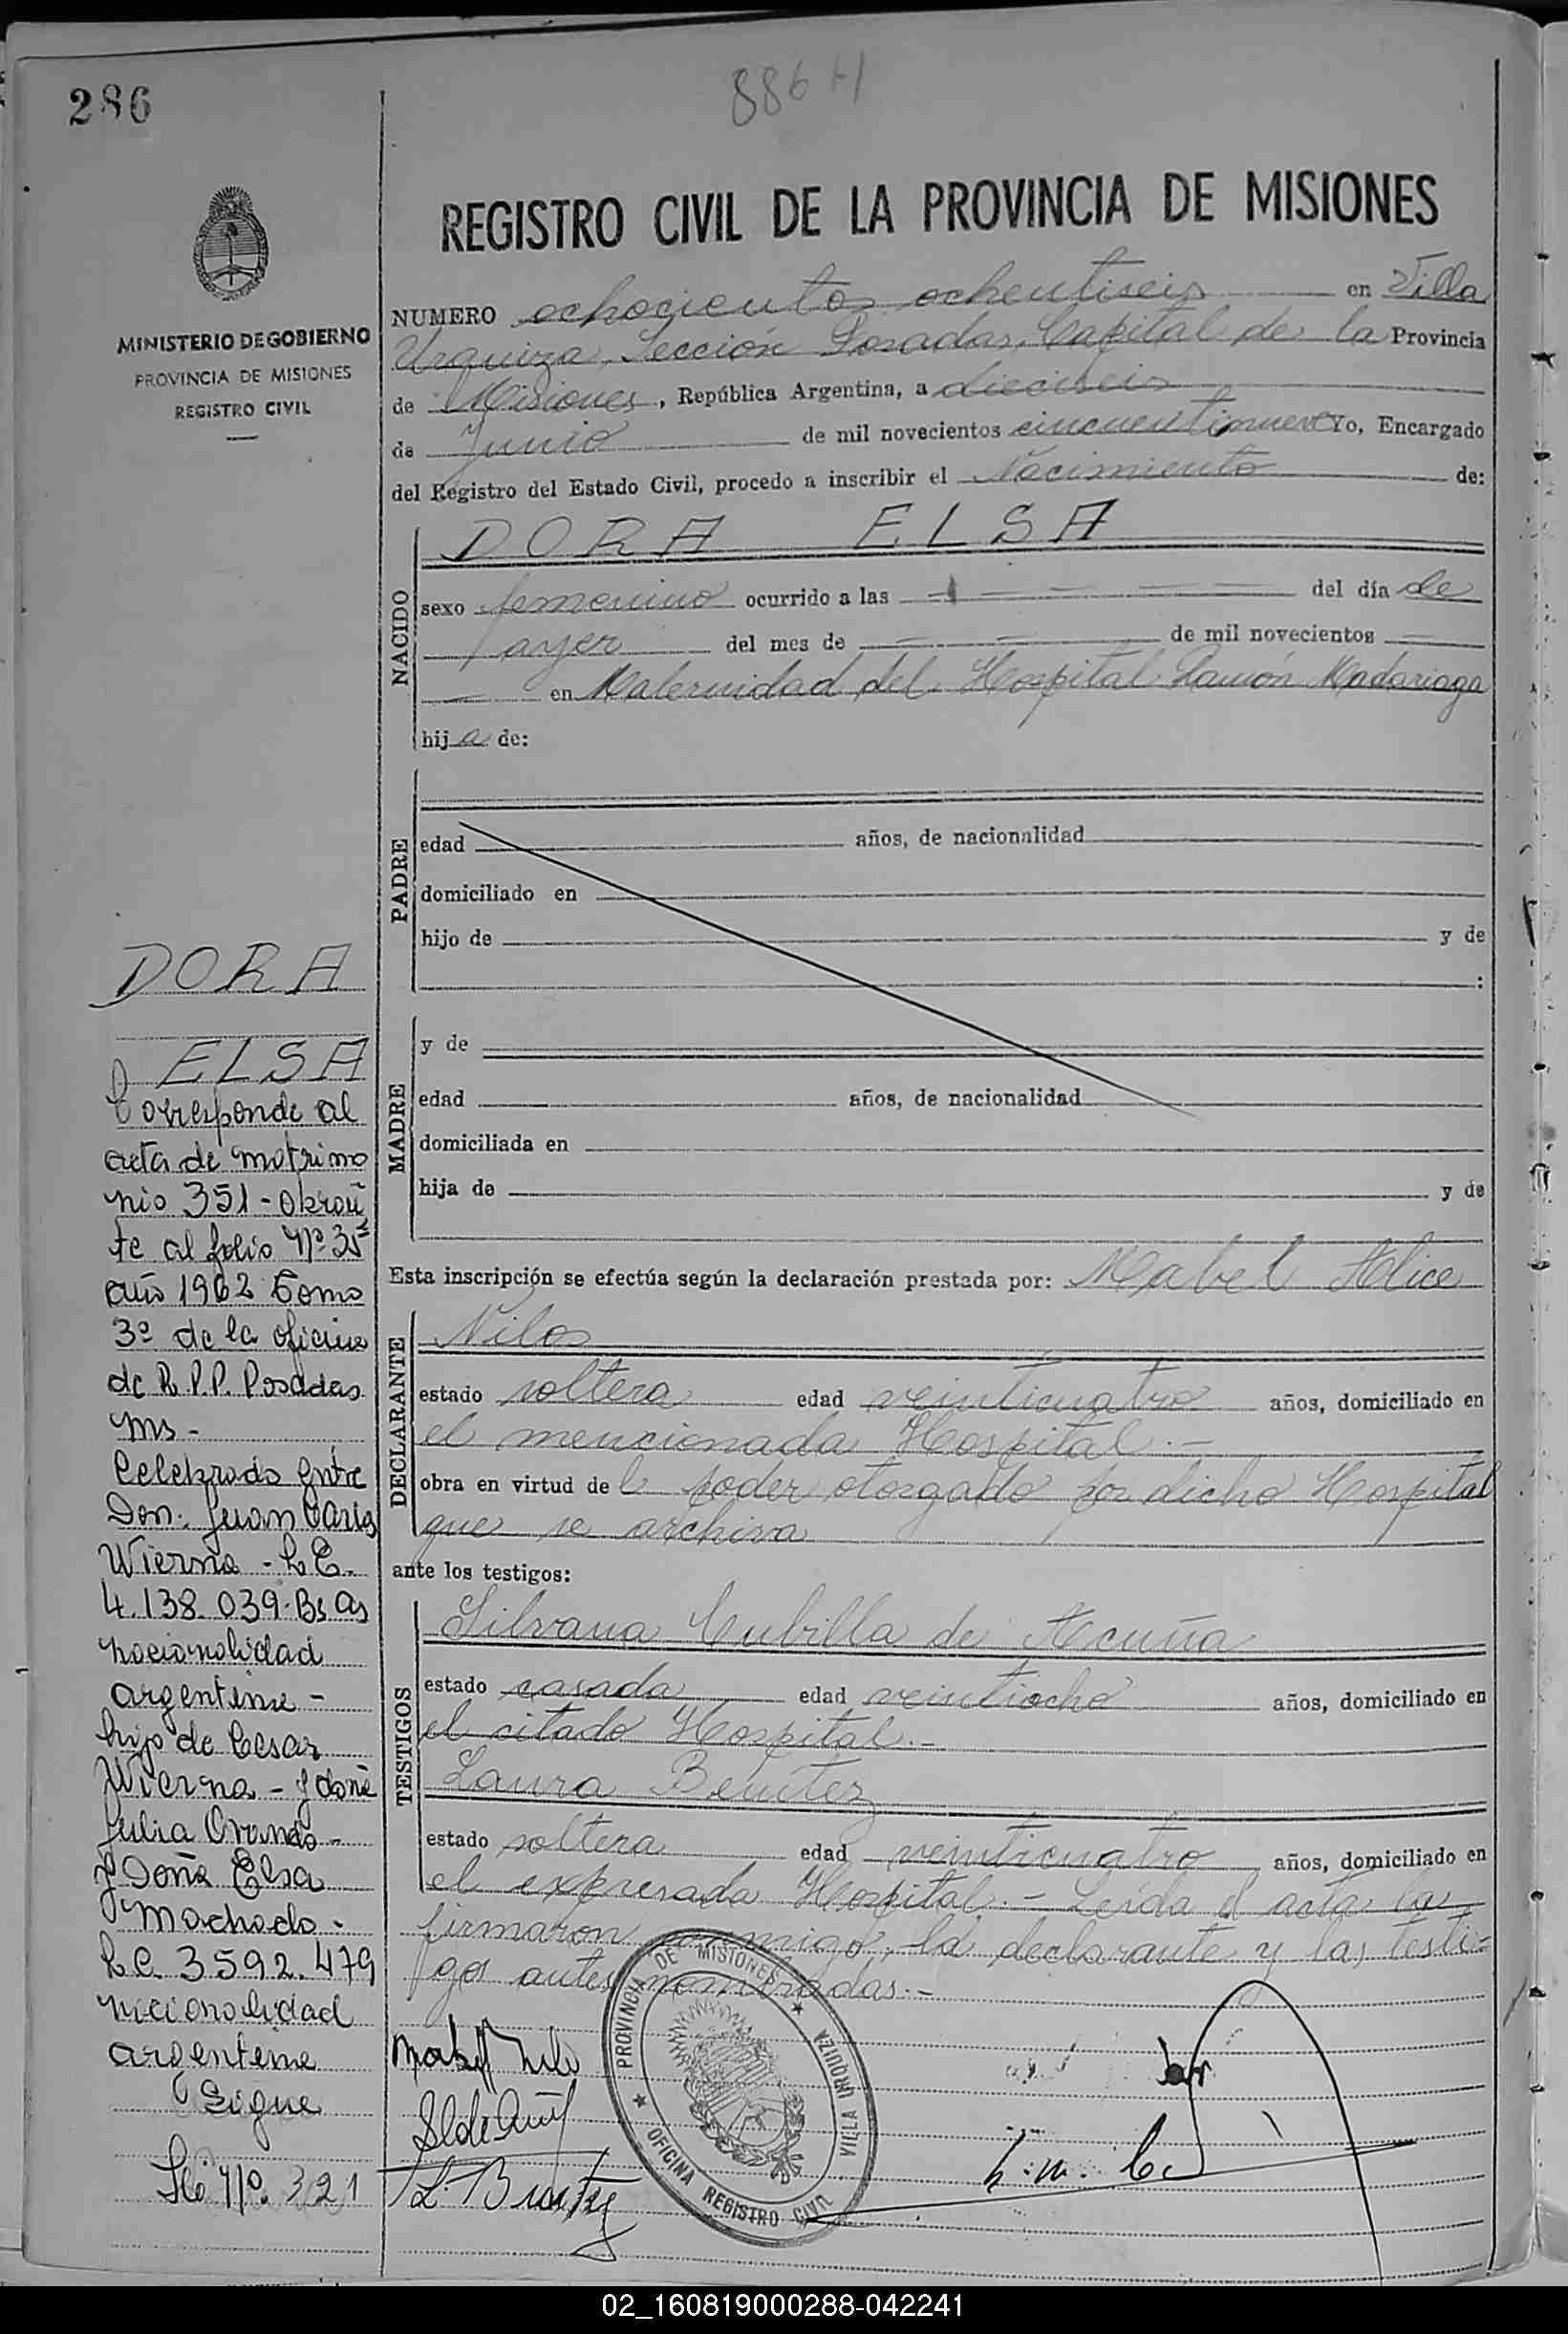 286
886 H
MINISTERIO DE GOBIERNO
PROVINCIA DE MISIONES
REGISTRO CIVIL
REGISTRO CIVIL DE LA PROVINCIA DE MISIONES
NUMERO ochocientos ochentiseis en Villa
Urquiza, Sección Posadas, Capital de la Provincia
de Misiones, República Argentina, a dieciseis
de Junio de mil novecientos cincuentinueve Yo, Encargado
del Registro del Estado Civil, procedo a inscribir el Nacimiento de:
NACIDO
DORA ELSA
sexo femenino ocurrido a las del día de
ayer del mes de de mil novecientos
en Maternidad del Hospital Ramón Madariaga
hija de:
PADRE
edad años, de nacionalidad
domiciliado en
hijo de y de
:
MADRE
y de
edad años, de nacionalidad
domiciliada en
hija de y de
Esta inscripción se efectúa según la declaración prestada por: Mabel Alice
DECLARANTE
Nilos
estado soltera edad veinticuatro años, domiciliado en
el mencionada Hospital.-
obra en virtud del poder otorgado por dicho Hospital
que se archiva
ante los testigos:
TESTIGOS
Silvana Cubilla de Acuña
estado casada edad veintiocho años, domiciliado en
el citado Hospital.-
Laura Benítez
estado soltera edad veinticuatro años, domiciliado en
el expresada Hospital.- Leída el acta la
firmaron conmigo, la declarante y las testi-
gos antes nombradas.-
PROVINCIA DE MISIONES
VILLA URQUIZA
OFICINA REGISTRO CIVIL
DORA
ELSA
Corresponde al
acta de matrimo
nio 351 - Obran
te al folio Nº 35
año 1962 Tomo
3º de la oficina
de R.P.P. Posadas
Ms -
Celebrado entre
Don. Juan Carlos
Wierna - L.E.
4.138.039. Bs As
nacionalidad
argentina -
hijo de Cesar
Wierna - y doña
Julia
y Doña Elsa
Machado -
L.C. 3592.479
nacionalidad
argentina
Sigue
Nº 321
02_160819000288-042241